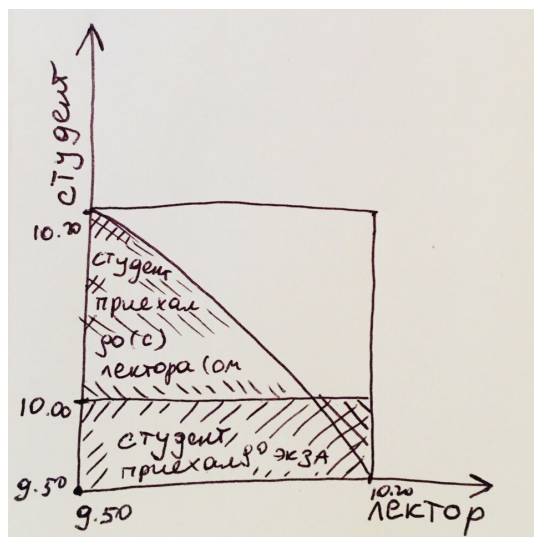 студент
10.20
студент
приехал
до(с)
лектора (ом
10.00
студент
приехал до экза
9.50
9.50
10.20
лектор